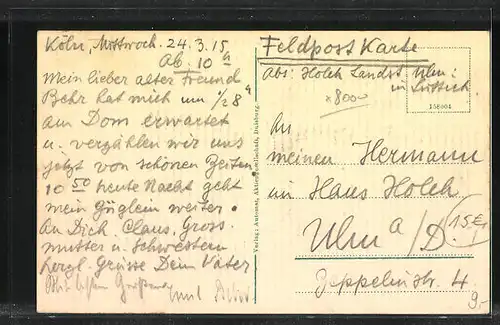 Köln, Mittwoch. 24.3.15
Ab. 10 h
Mein lieber alter Freund
Behr hat mich um 1/2 8 h
am Dom erwartet
u. verzählen wir uns
jetzt von schönen Zeiten
10 50 heute Nacht geht
mein Züglein weiter.
An Dich, Claus, Gross-
mutter u. Schwestern
herzl. Grüsse Dein Vater
Feldpost Karte
Abs: Holch Landst. Ulm:
in Lüttich
x8000
158604
An
meinen Hermann
im Haus Holch
Ulm a/D.
15E
Zeppelinstr. 4
9,-
Verlag: Automat, Aktien-Gesellschaft, Duisburg.